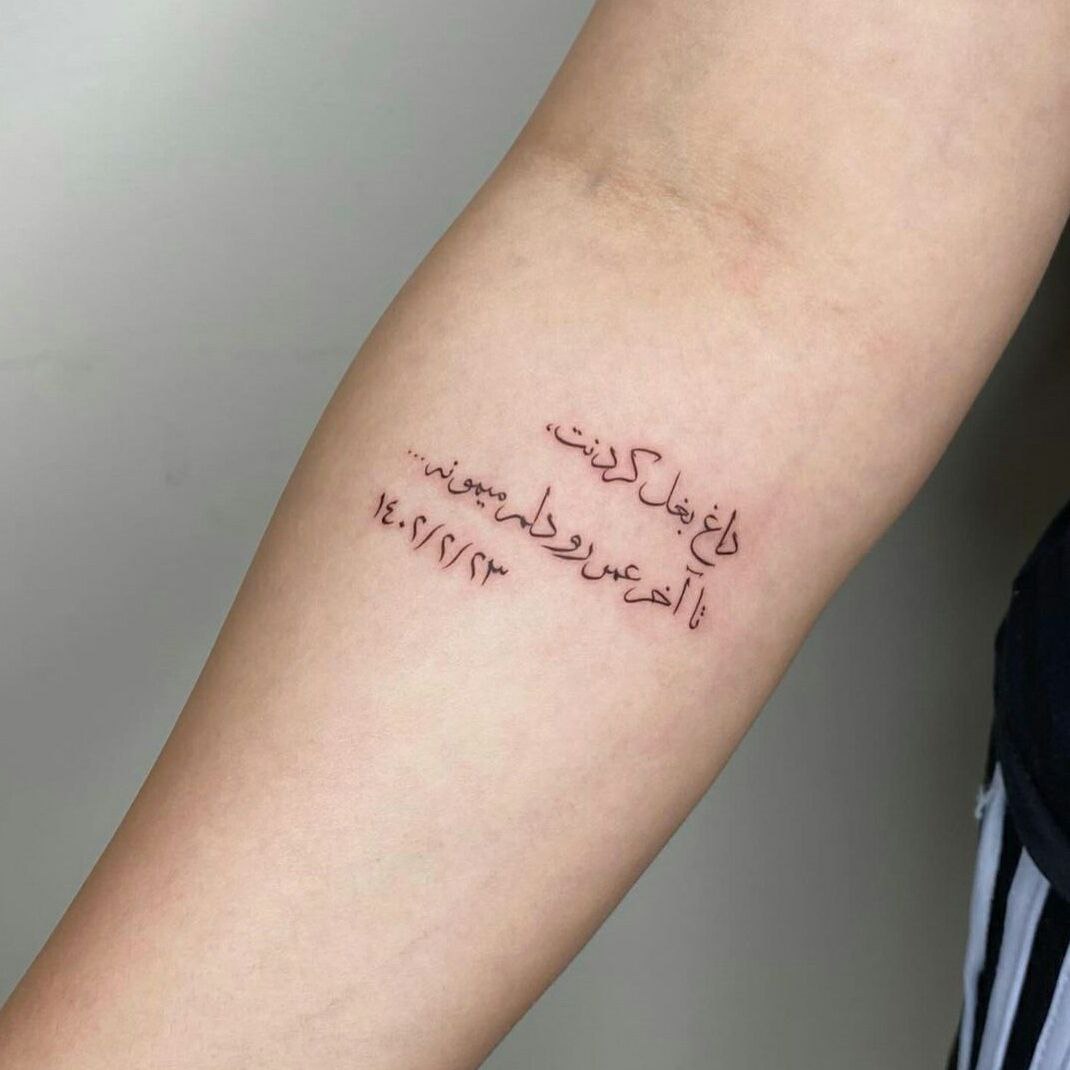 داغ بغل کردنت،
تا آخر عمر رو دلم میمونه...
۱٤۰۲/۲/۲۳